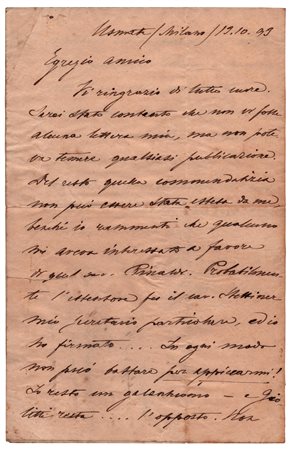 Usmate (Milano) 19.10.99
Egregio amico
Vi ringrazio di tutto cuore.
Sarei stato contento che non vi fosse
alcuna lettera mia, ma non pote
va temere qualsiasi publicazione.
Del resto quella commendatizia
non può essere stata estesa da me
benché io rammenti che qualcuno
mi aveva interessato a favore
di quel cav. Rinaldi. Probabilmen
te l'estensore fu il cav.
mio segretario particolare, ed io
ho firmato .... In ogni modo
non può bastare per appiccarmi!
Io resto un galantuomo — e Gio
litti resta .... l'opposto. Non